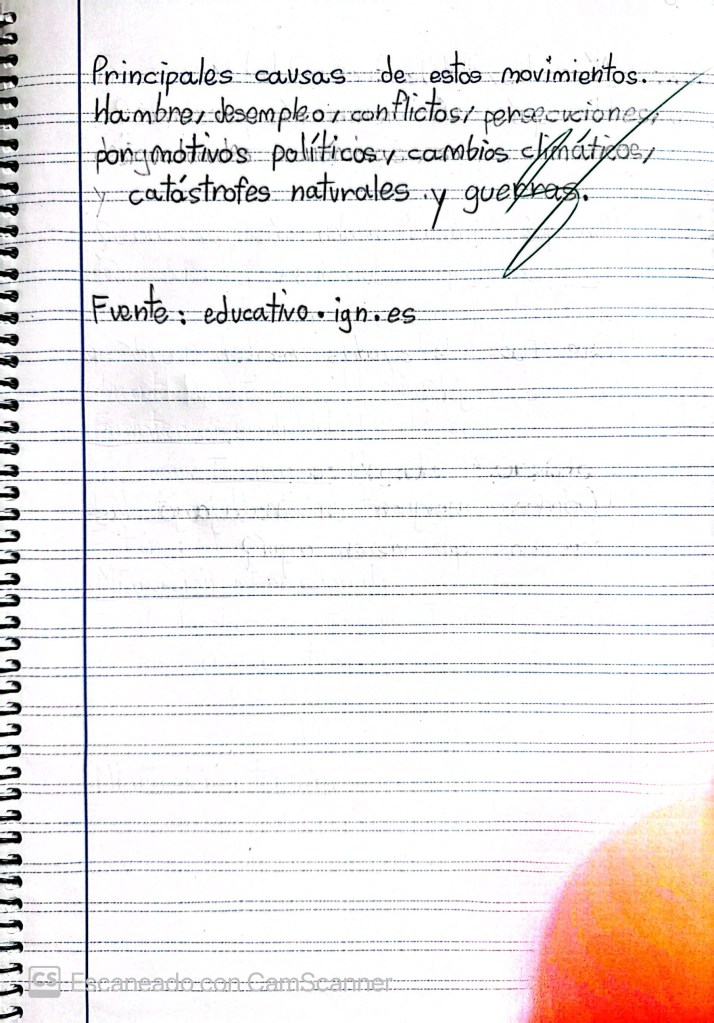 Principales causas de estos movimientos.
Hambre, desempleo, conflictos, persecuciones,
por motivos políticos, cambios climáticos,
y catástrofes naturales y guerras.
Fuente: educativo.ign.es
CS Escaneado con CamScanner